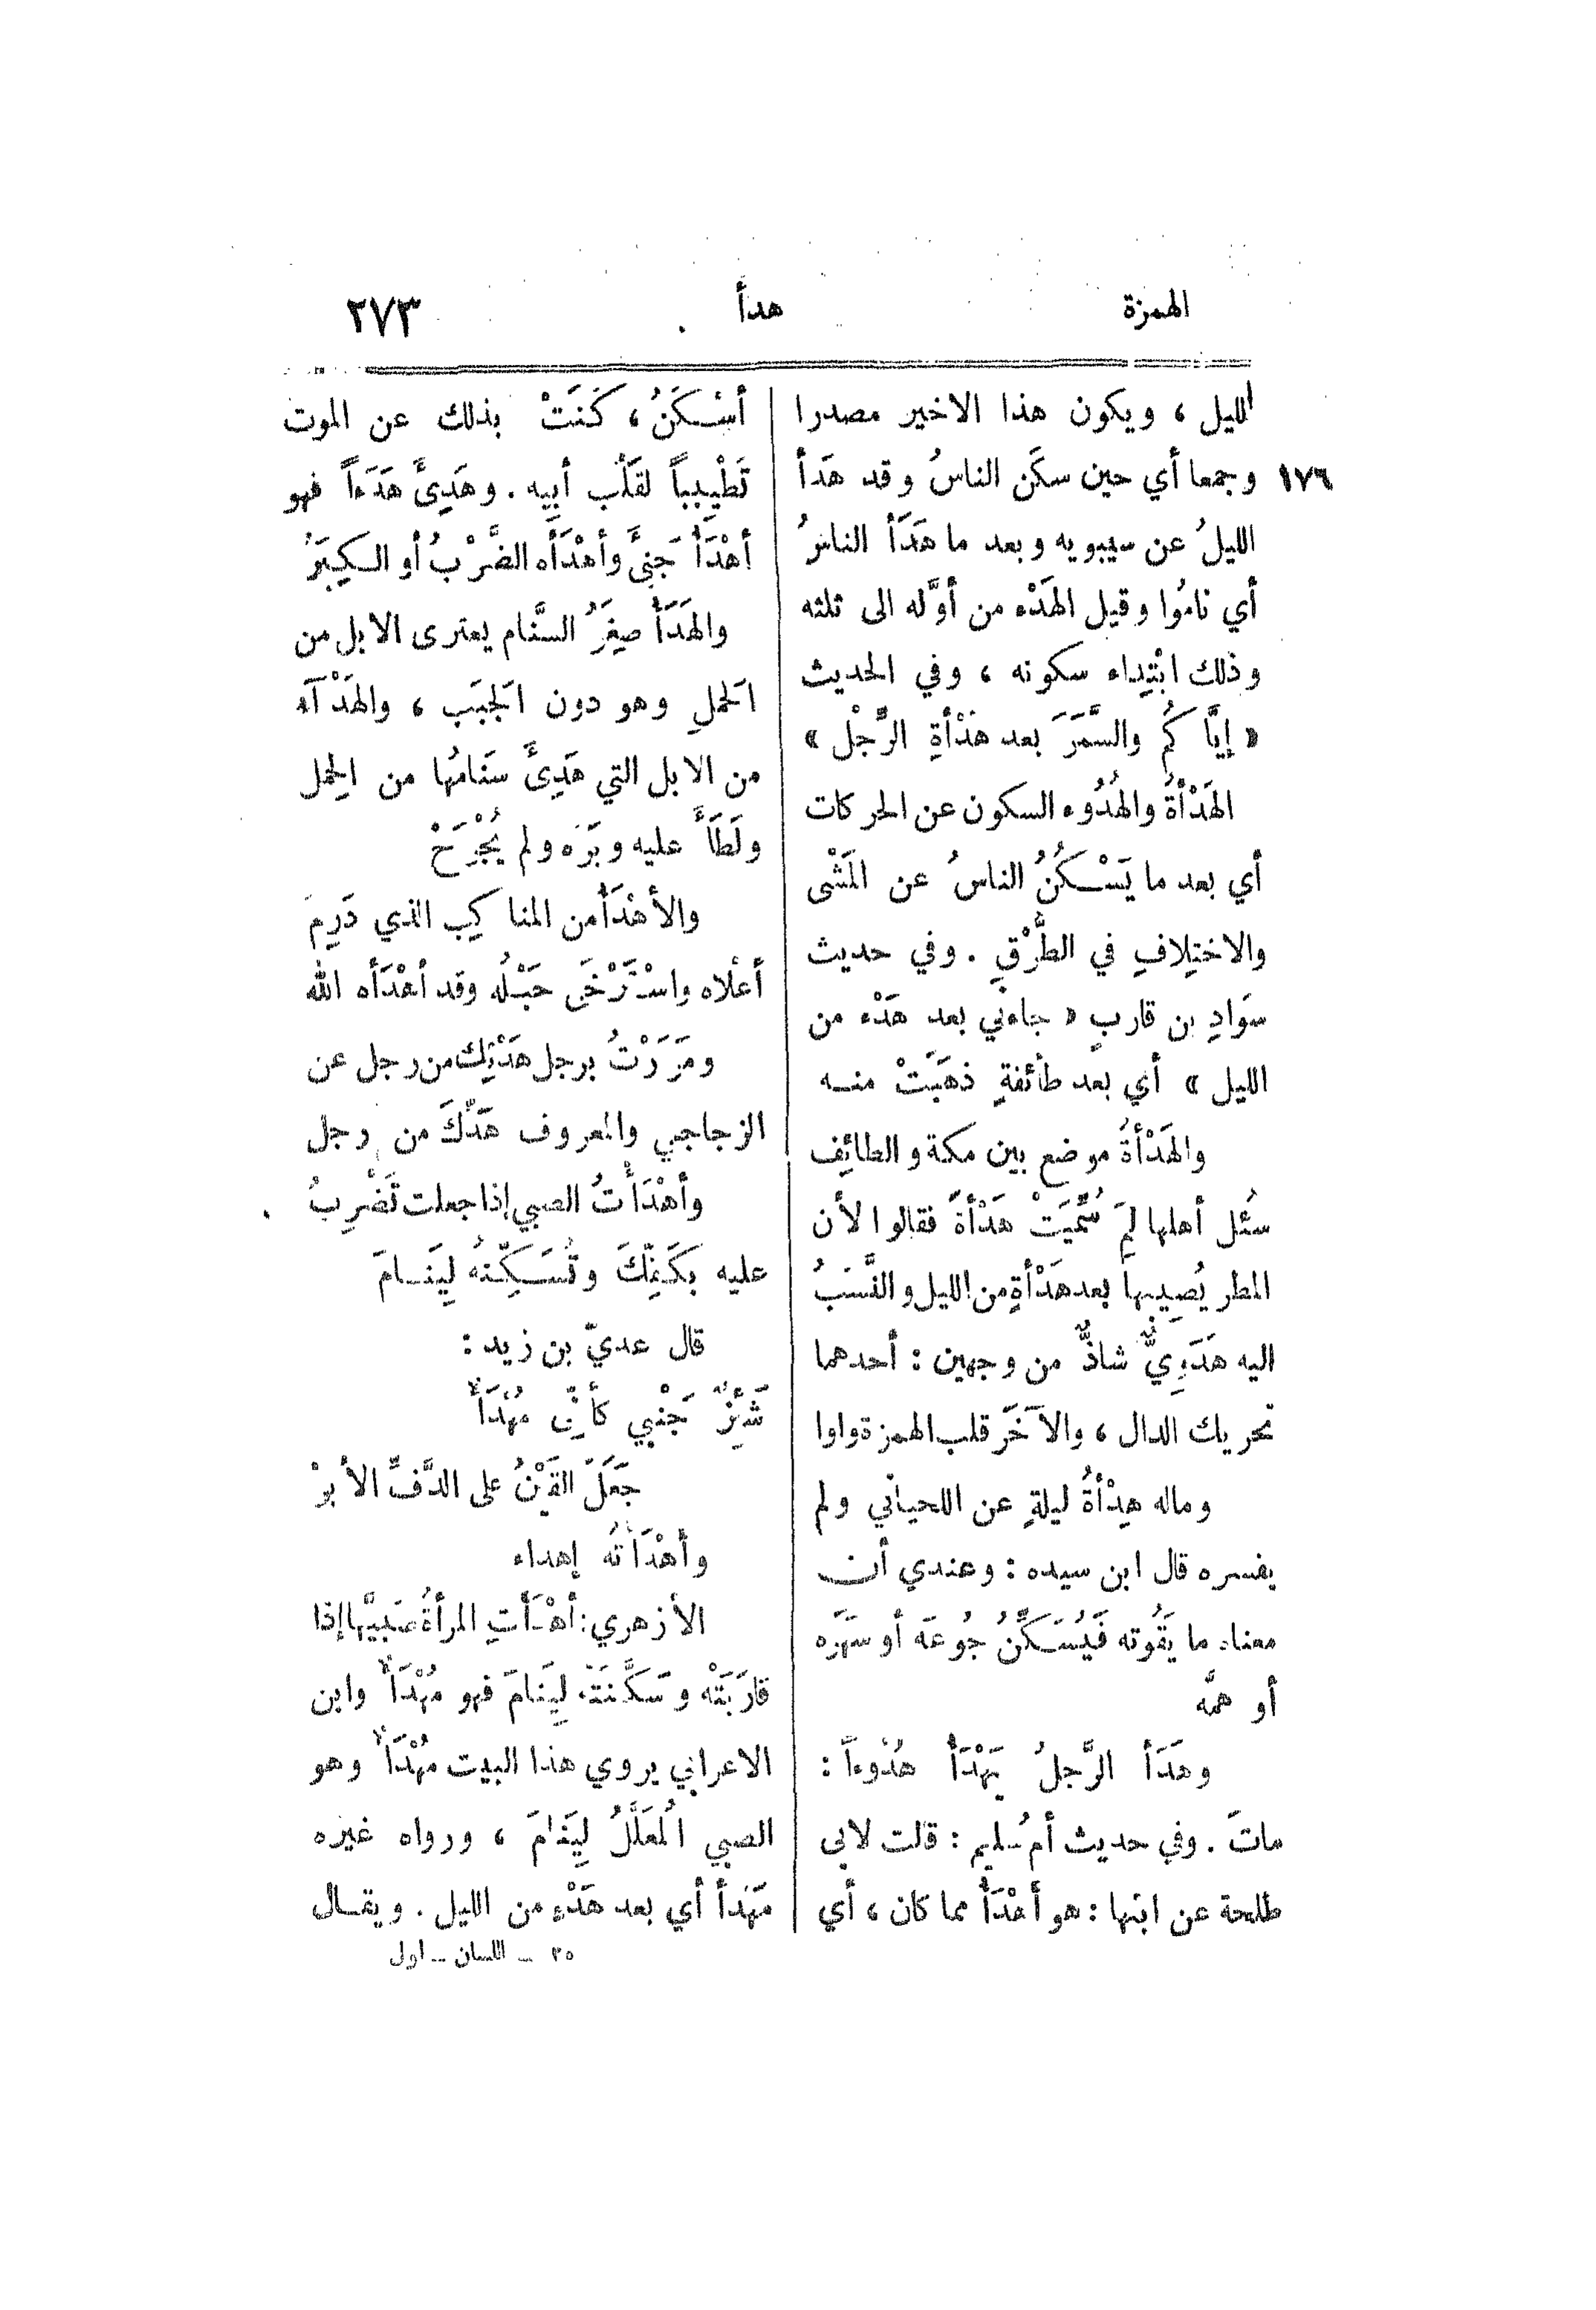 الهمزة هدأ ٢٧٣
الليل ، ويكون هذا الاخير مصدرا
١٧٦ وجمعا أي حين سكَن الناسُ وقد هَدَأ
الليلُ عن سيبويه وبعد ما هَدَأ الناسُ
أي نامُوا وقيل الهَدْء من أوَّله الى ثلثه
وذلك ابْتِداء سكونه ، وفي الحديث
« إيَّاكُم والسَّمَرَ بعد هَدْأةِ الرِّجْل »
الهَدْأةُ والهُدُوء السكون عن الحركات
أي بعد ما يَسْكُنُ الناسُ عن المَشْى
والاختِلافِ في الطُّرُقِ . وفي حديث
سَوَادِ بن قاربٍ « جاءني بعد هَدْء من
الليل » أي بعد طائفةٍ ذهَبَتْ منه
والهَدْأةُ موضع بين مكة والطائِف
سئل أهلها لِمَ سُمِّيَتْ هَدْأةً فقالوا لأن
المطر يُصِيبها بعد هَدْأةٍ من الليل والنَّسَبُ
اليه هَدَوِيٌّ شاذٌّ من وجهين : أحدهما
تحريك الدال ، والآخَر قلب الهمزة واوا
وماله هِدْأةُ ليلةٍ عن اللحياني ولم
يفسره قال ابن سيده : وعندي أن
معناه ما يَقُوته فَيُسَكِّنُ جُوعَه أو سَهَرَه
أو همَّه
وهَدَأ الرَّجلُ يَهْدَأُ هُدُوءاً :
ماتَ . وفي حديث أم سُليم : قالت لابى
طلحة عن ابنها : هو أَهْدَأُ مما كان ، أي
أسْكَنُ ، كَنَتْ بذلك عن الموت
تَطْيِيباً لقَلْب أبيه . وهَدِئَ هَدَءاً فهو
أهْدَأُ جَنِئَ وأهْدَأه الضَّرْبُ أو الكِبَرُ
والهَدَأُ صِغَرُ السَّنام يعترى الابل من
الحَمْلِ وهو دون الجَبَب ، والهَدْآء
من الابل التي هَدِئَ سَنامُها من الحِمل
ولَطَأَ عليه وبَرَه ولم يُجْرَحْ
والأهْدَأُ من المناكِب الذي دَرِمَ
أعْلاه واسْتَرْخَى حَبْلُه وقد أهْدَأه الله
ومَرَرْتُ برجل هَدْئِك من رجل عن
الزجاجي والمعروف هَدِّكَ من رجل
وأهْدَأْتُ الصبي إذا جعلت تَضْرِبُ
عليه بكَفِّكَ وتُسَكِّنهُ لِيَنامَ
قال عديّ بن زيد :
شَئِزٌ جَنْبِي كأنِّي مُهْدَأٌ
جَعَلَ القَيْنُ على الدَّفِّ الأبرْ
وأهْدَأتُه إهداء
الأزهري : أهْدَأتِ المرأةُ صَبِيَّها إذا
قارَبَتْه وسَكَّنَتْه لِيَنامَ فهو مُهْدَأٌ وابن
الاعرابي يروي هذا البيت مُهْدَأٌ وهو
الصبي المُعَلَّلُ لِيَنامَ ، ورواه غيره
مَهْدأ أي بعد هَدْءٍ من الليل . ويقال
٣٥ ــ اللسان ــ اول